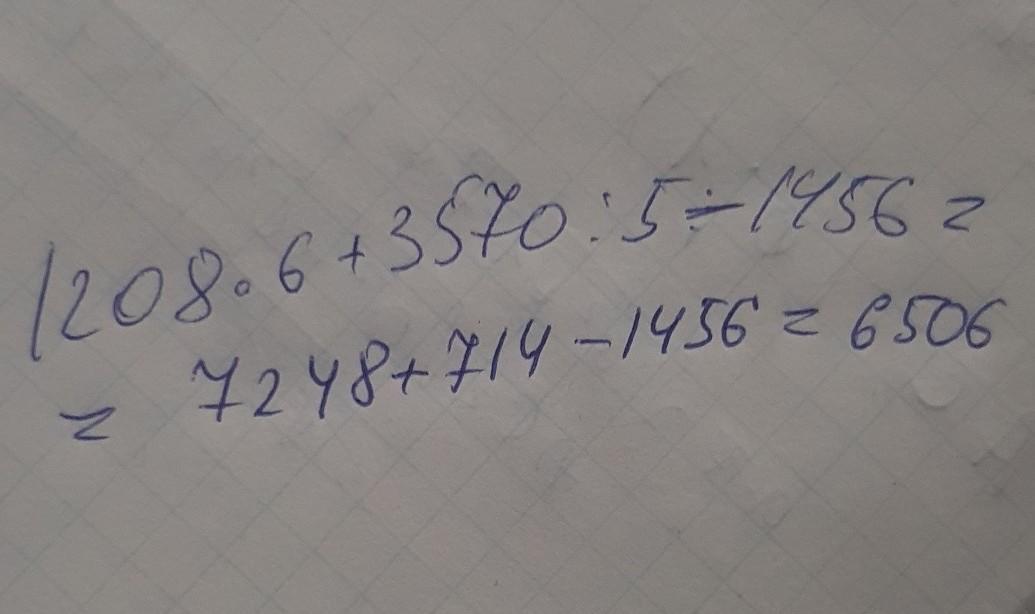 1208·6+3570:5÷1456=
= 7248+714-1456=6506